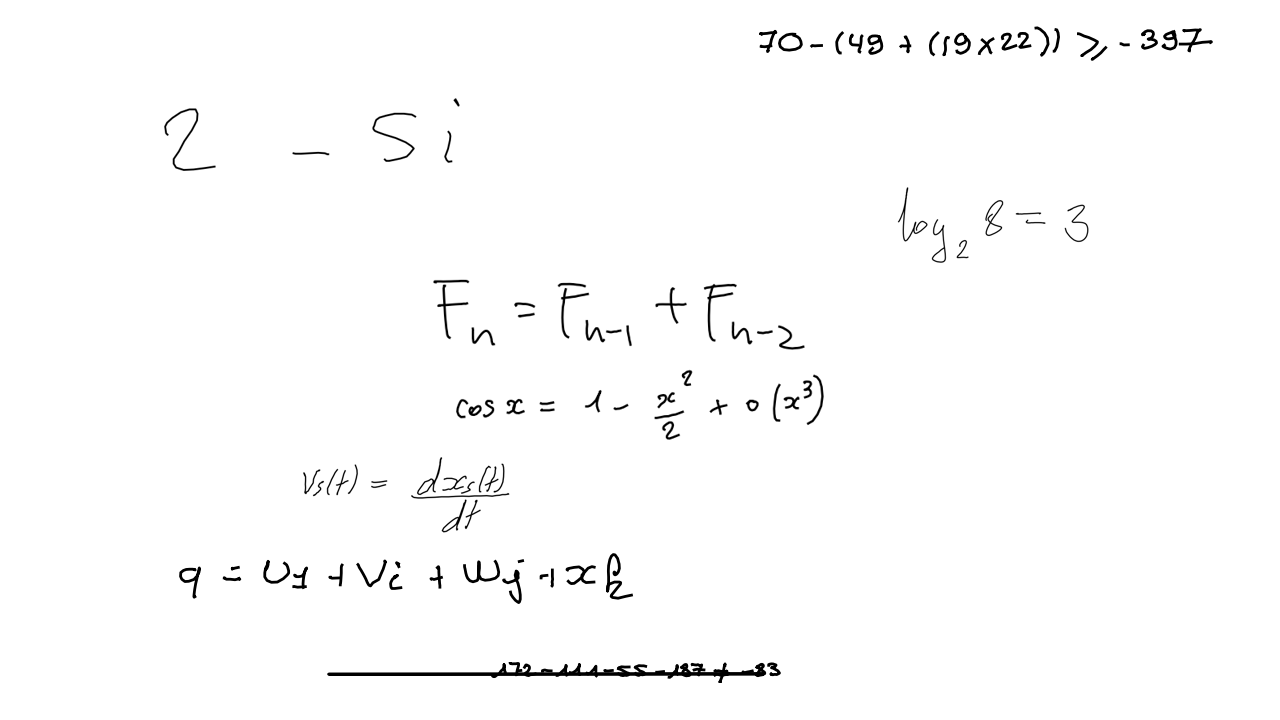 70 - (49 + (19 x 22)) ⩾ - 397
2 - 5i
log₂ 8 = 3
Fₙ = Fₙ₋₁ + Fₙ₋₂
cos x = 1 - x²/2 + o(x³)
Vₛ(t) = dxₛ(t)/dt
q = u1 + vi + wj + xk